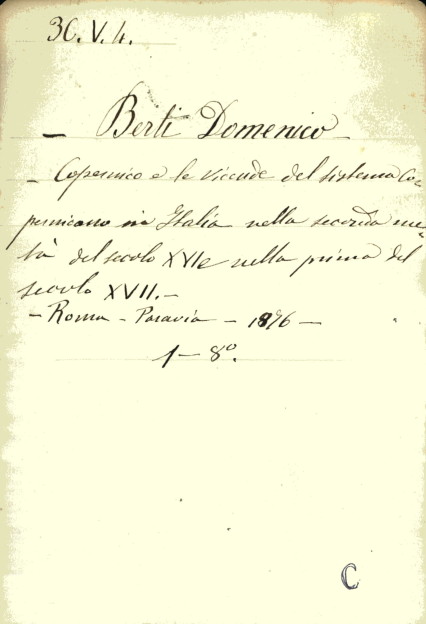 3C.V.4.
– Berti Domenico –
– Copernico e le vicende del sistema Co-
pernicano in Italia nella seconda me-
tà del secolo XVI e nella prima del
secolo XVII. –
– Roma – Paravia – 1876 –
1 – 8º.
C